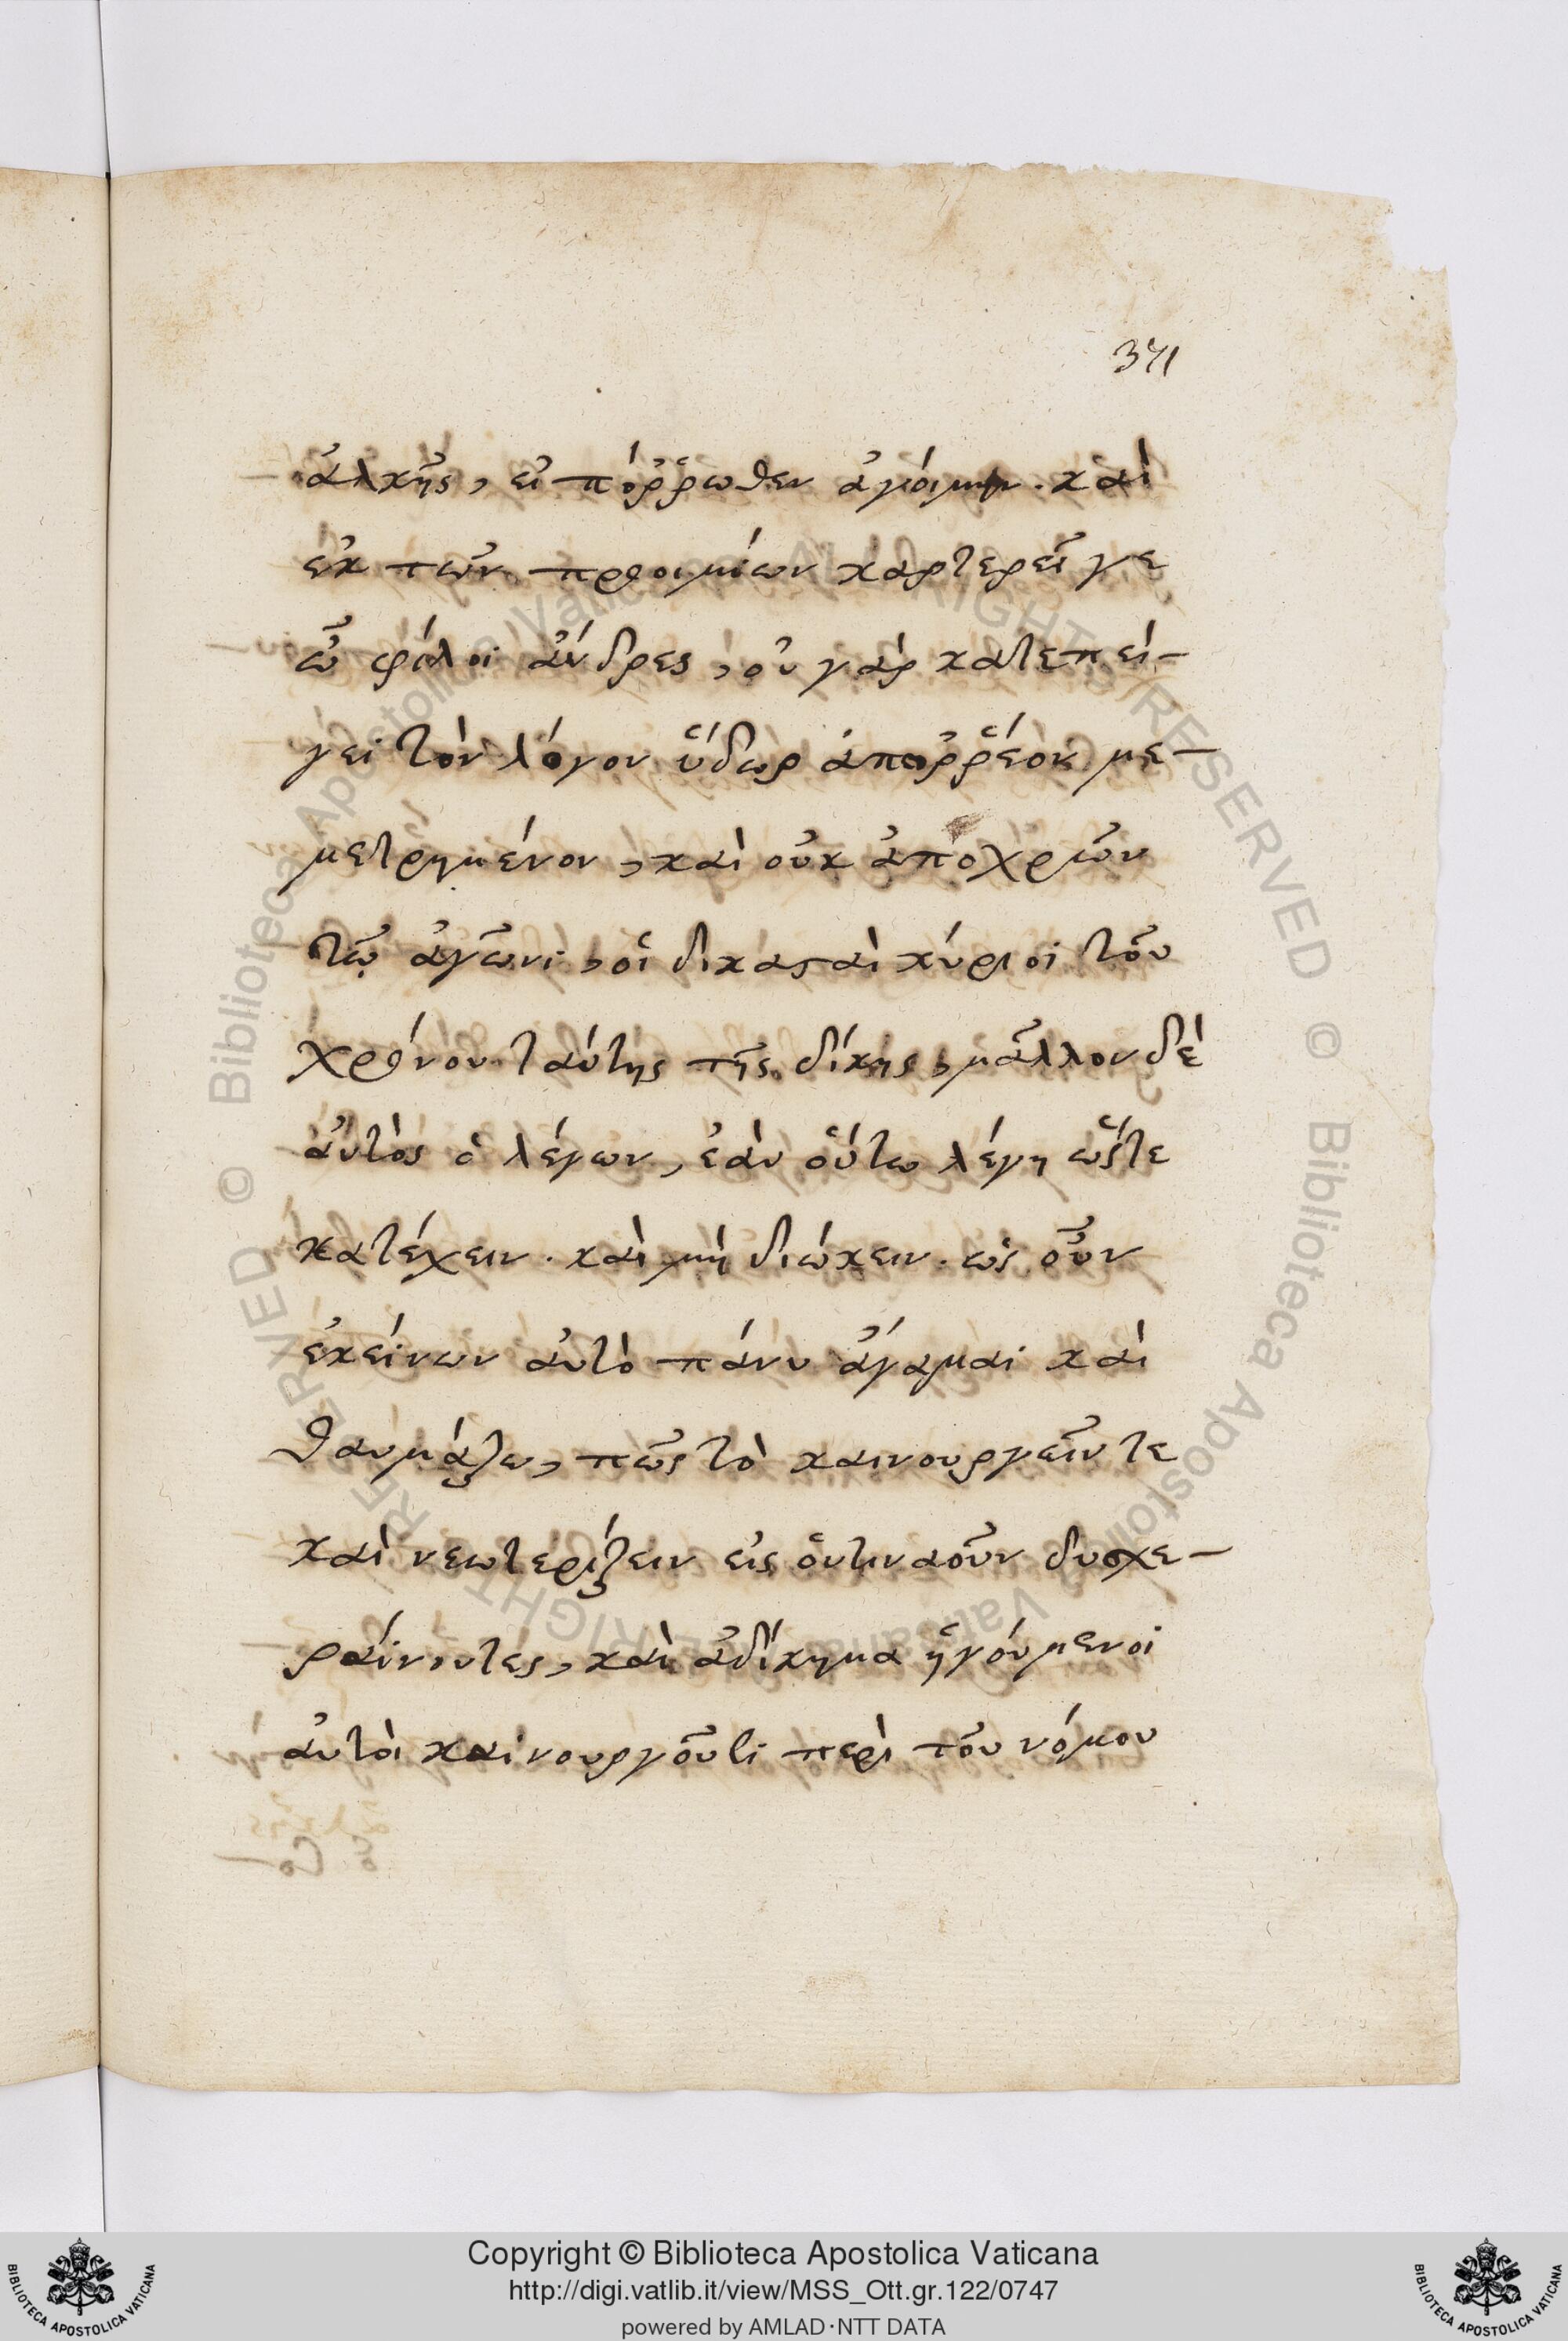 371
ἀλκῆς, εἰ πόῤῥωθεν ἀγοίμην. καὶ
ἐκ τῶν προοιμίων καρτερεῖ γε
ὦ φίλοι ἄνδρες, οὐ γὰρ κατεπεί-
γει τὸν λόγον ὕδωρ ἀποῤῥέον με-
μετρημένον, καὶ οὐκ ἀποχρῶν
τῷ ἀγῶνι, οἱ δικασταὶ κύριοι τοῦ
χρόνου ταύτης τῆς δίκης, μᾶλλον δὲ
αὐτὸς ὁ λέγων, ἐὰν οὕτω λέγη ὥστε
κατέχειν. καὶ μὴ διώκειν. ὡς οὖν
ἐκείνων αὐτὸ πάνυ ἄγαμαι καὶ
θαυμάζω, πῶς τὸ καινουργεῖν τε
καὶ νεωτερίζειν εἰς ὁντιναοῦν δυσχε-
ραίνοντες, καὶ ἀδίκημα ἡγούμενοι
αὐτοὶ καινουργοῦσι περὶ τοῦ νόμου
© Biblioteca Apostolica Vaticana ALL RIGHTS RESERVED © Biblioteca Apostolica Vaticana ALL RIGHTS RESERVED
Copyright © Biblioteca Apostolica Vaticana
http://digi.vatlib.it/view/MSS_Ott.gr.122/0747
powered by AMLAD·NTT DATA
BIBLIOTECA APOSTOLICA VATICANA
BIBLIOTECA APOSTOLICA VATICANA